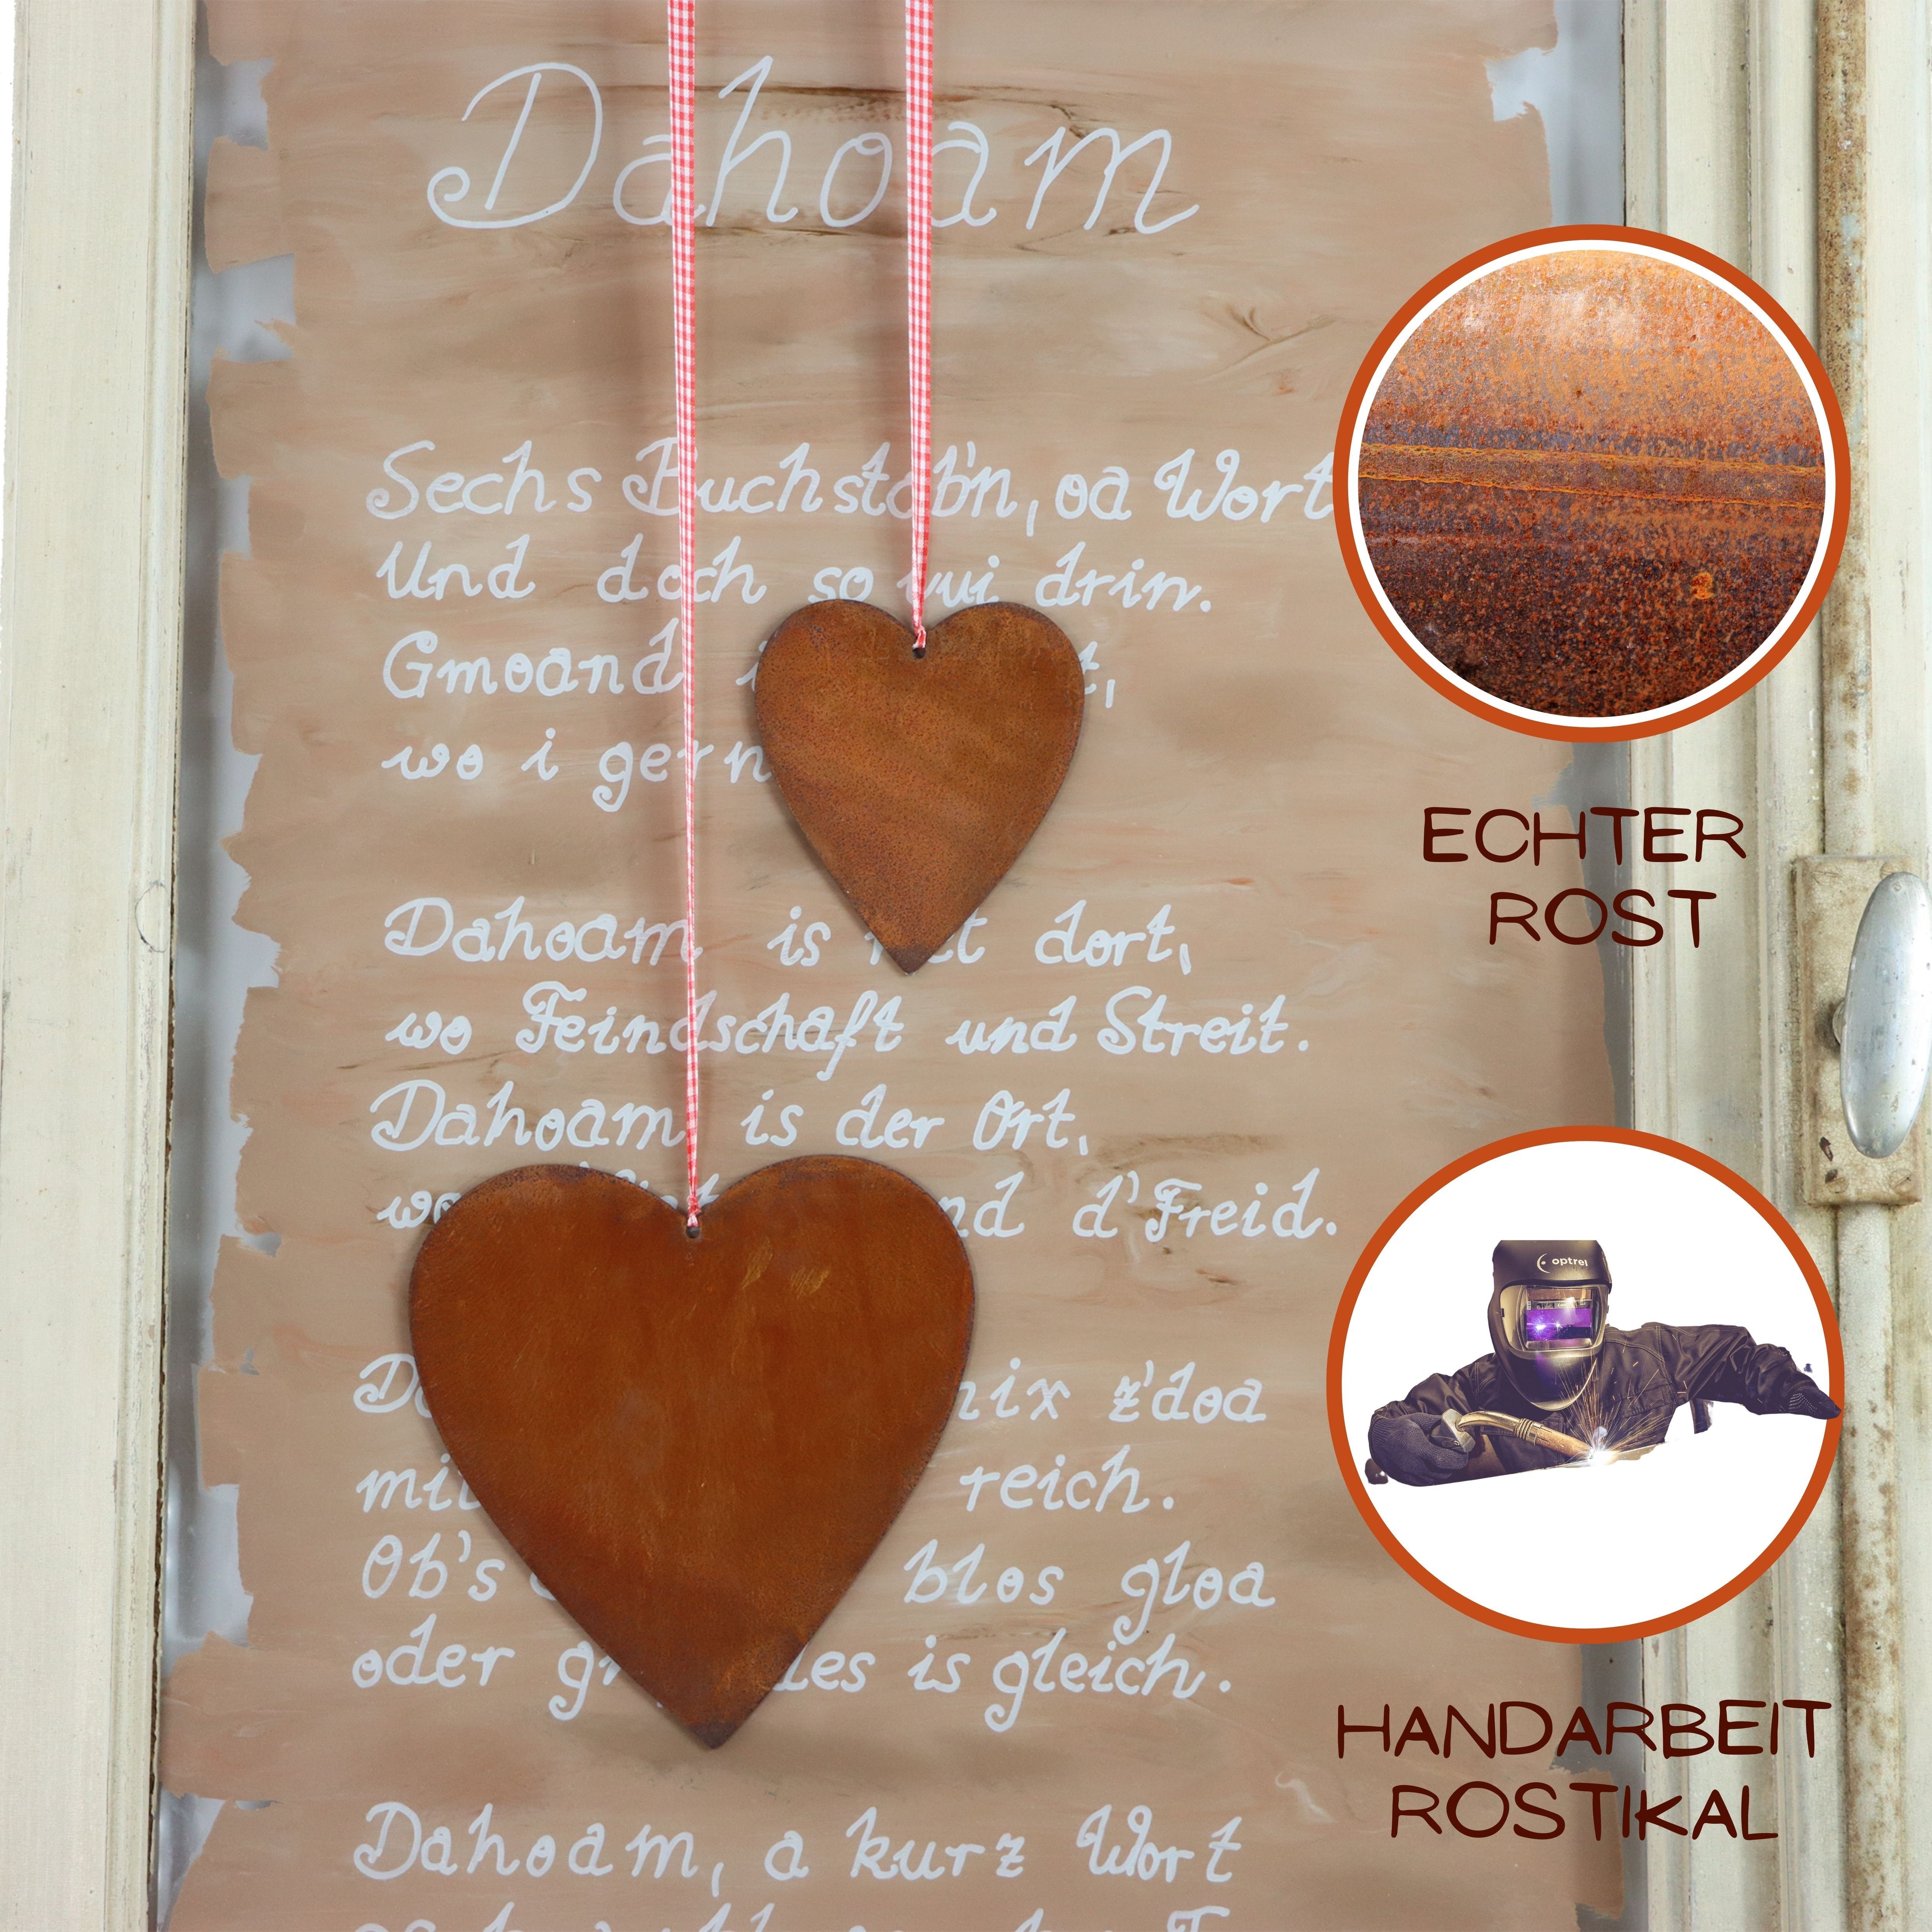 Dahoam
Sechs Buchstab'n, oa Wort
Und doch so vui drin.
Gmoand
wo i gern
Dahoam is net dort,
wo Feindschaft und Streit.
Dahoam is der Ort,
d'Freid.
nix z'doa
reich.
Ob's blos gloa
oder is gleich.
Dahoam, a kurz Wort
ECHTER
ROST
optrel
HANDARBEIT
ROSTIKAL